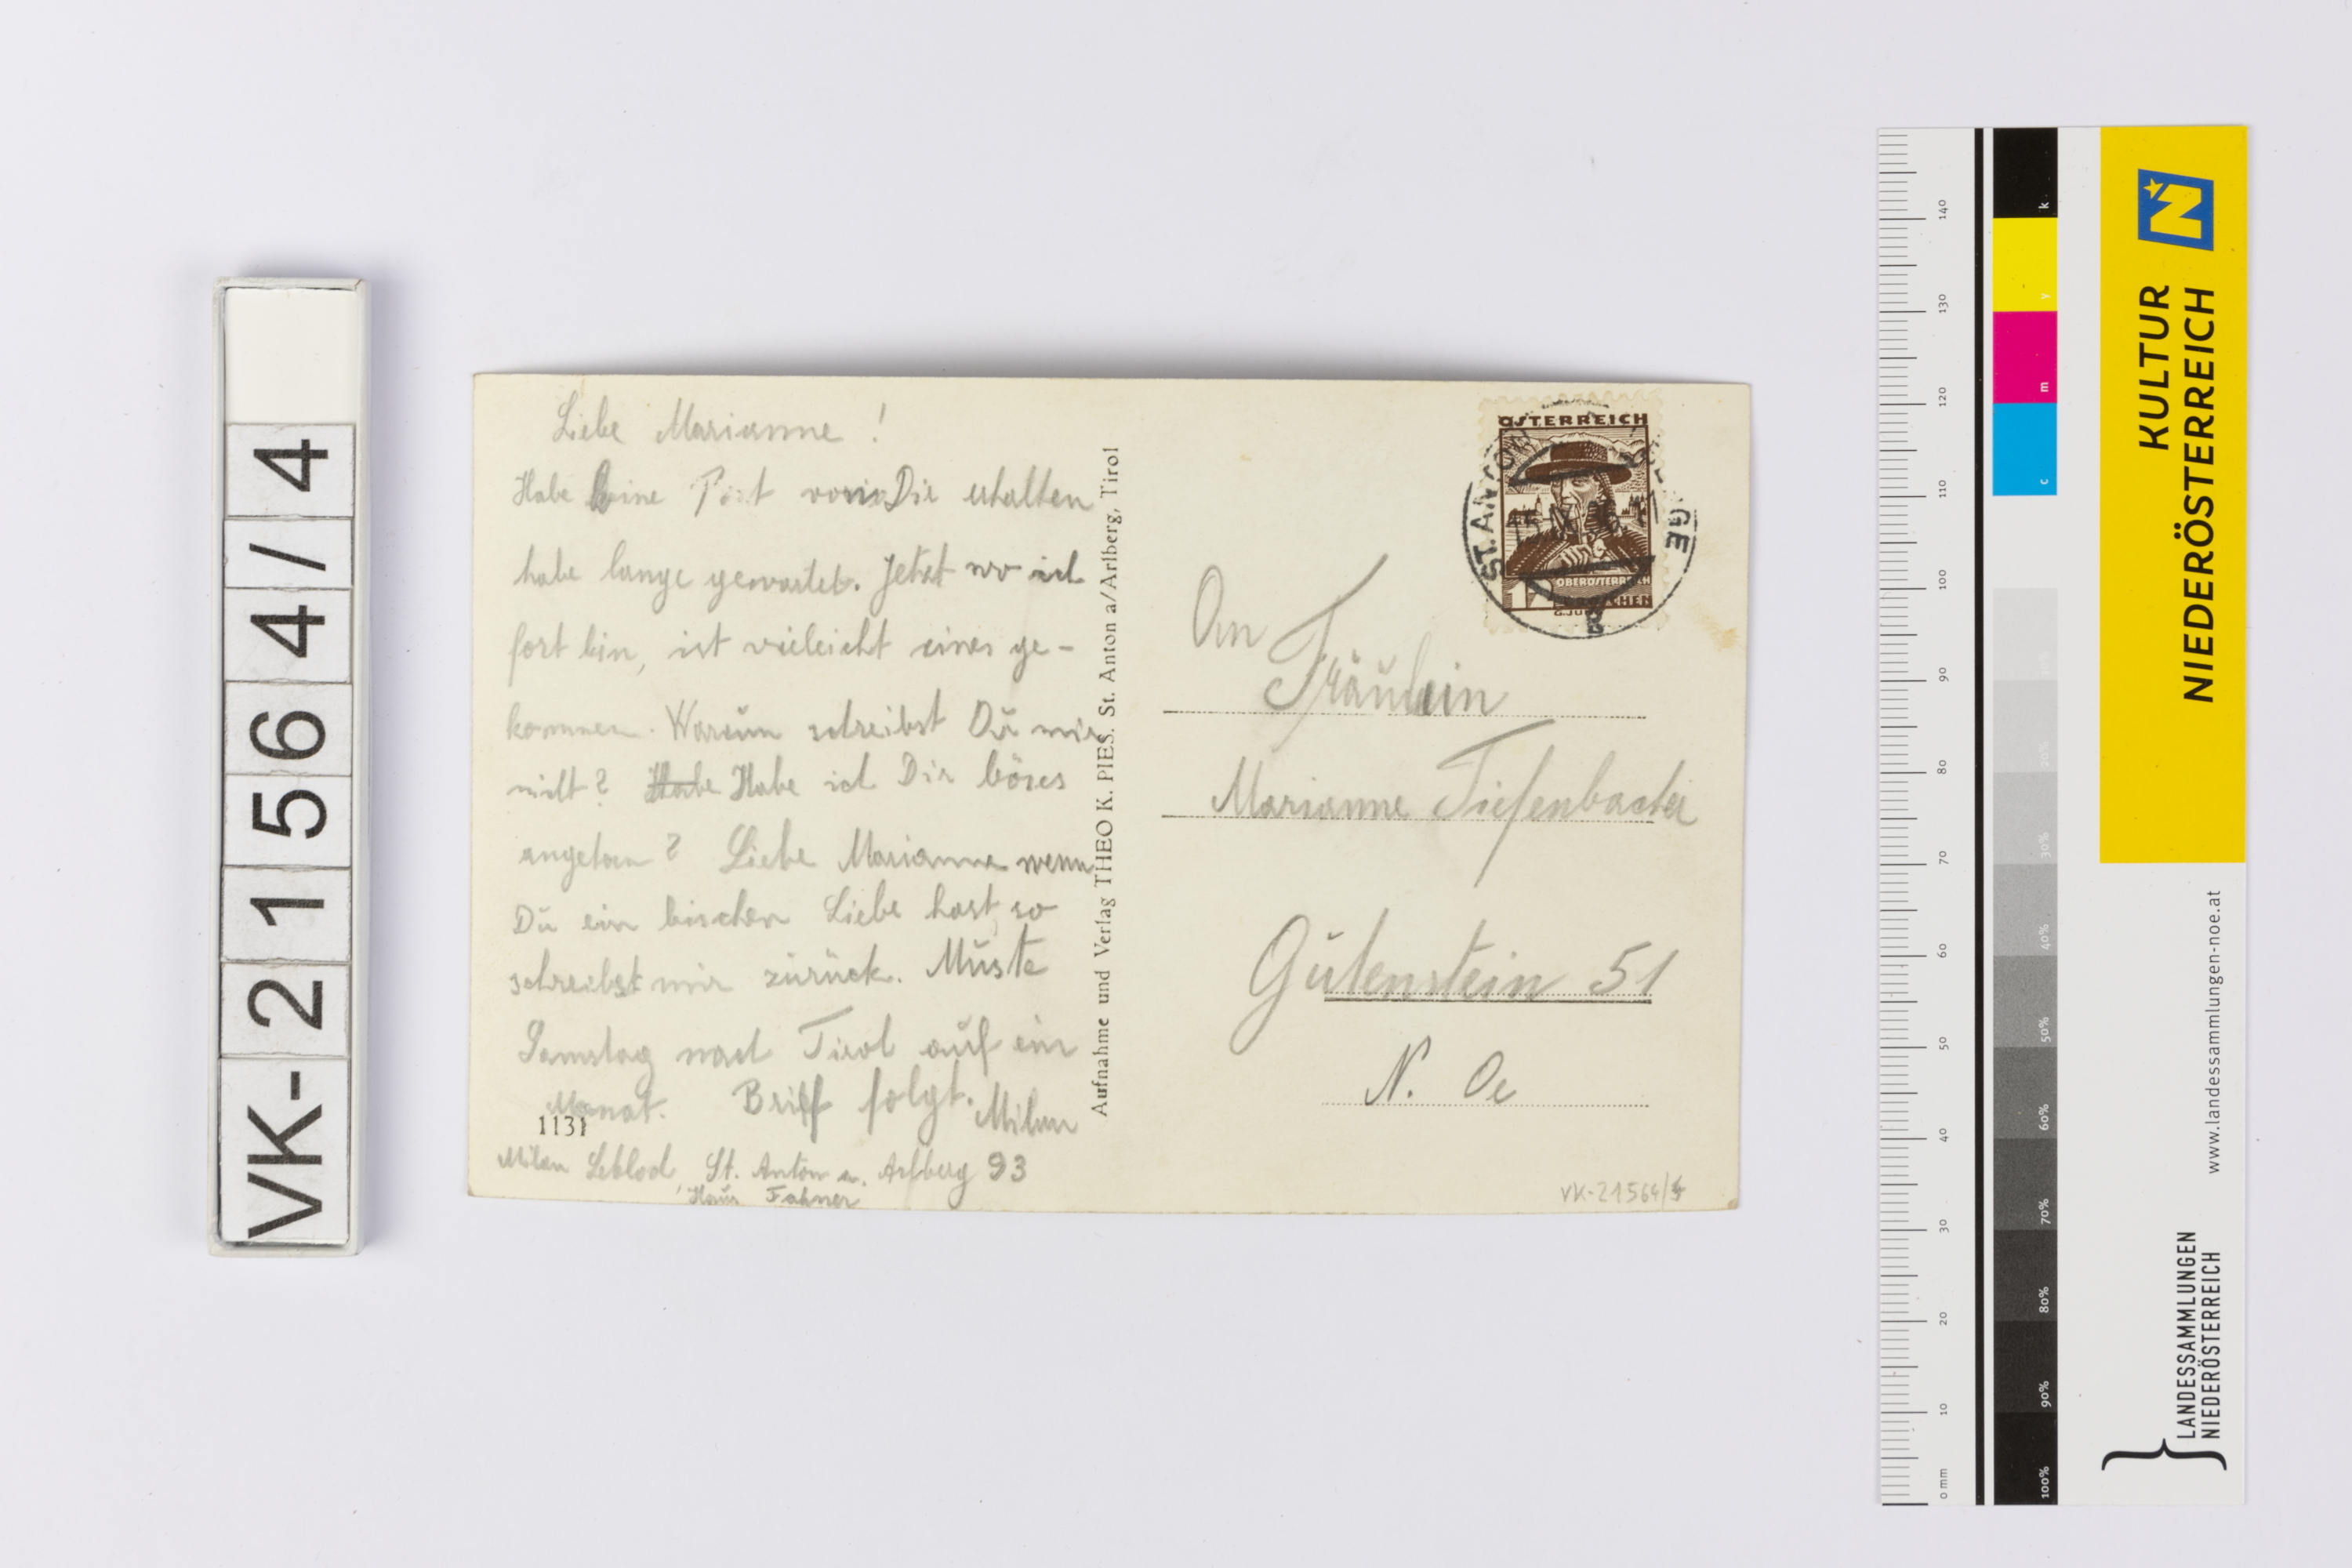 VK-21564/4
Liebe Marianne !
Habe keine Post von Dir erhalten
habe lange gewartet. Jetzt wo ich
fort bin, ist vieleicht eines ge-
kommen. Warum schreibst Du mir
nicht? Habe Habe ich Dir böses
angetan? Liebe Marianne wenn
Du ein bischen Liebe hast so
schreibst mir zurück. Muste
Samstag nach Tirol auf ein
Monat. Briff folgt. Milan
1131
Milan St. Anton a. Arlberg 93
Haus Fahner
Aufnahme und Verlag THEO K. PIES. St. Anton a/Arlberg, Tirol
ÖSTERREICH
OBERÖSTERREICH
ST. ANTON
An
Fräulein
Marianne Tiefenbacher
Gutenstein 51
N. Oe
VK-21564/4
0 mm 10 20 30 40 50 60 70 80 90 100 110 120 130 140
k
y
m
c
20%
30%
40%
50%
60%
70%
80%
90%
100%
N
KULTUR
NIEDERÖSTERREICH
www.landessammlungen-noe.at
LANDESSAMMLUNGEN
NIEDERÖSTERREICH